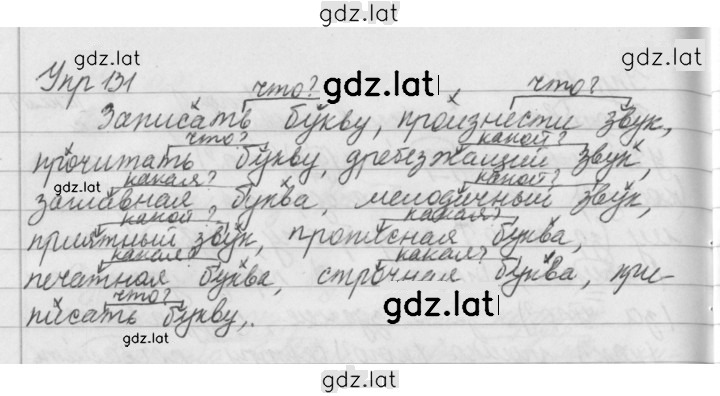 gdz.lat
gdz.lat
gdz.lat
Упр 131
что? gdz.lat что?
Записать букву, произнести звук,
что? какой?
прочитать букву, дребезжащий звук,
gdz.lat какая? какой?
заглавная буква, мелодичный звук,
какой? какая?
приятный звук, прописная буква,
какая? какая?
печатная буква, строчная буква, при-
что? gdz.lat
писать букву.
gdz.lat